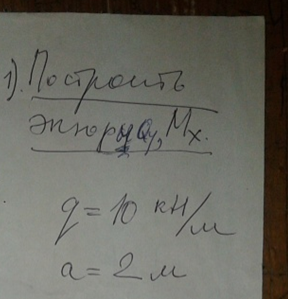 1). Построить
эпюры Qy, Mx.
q = 10 кН/м
a = 2 м